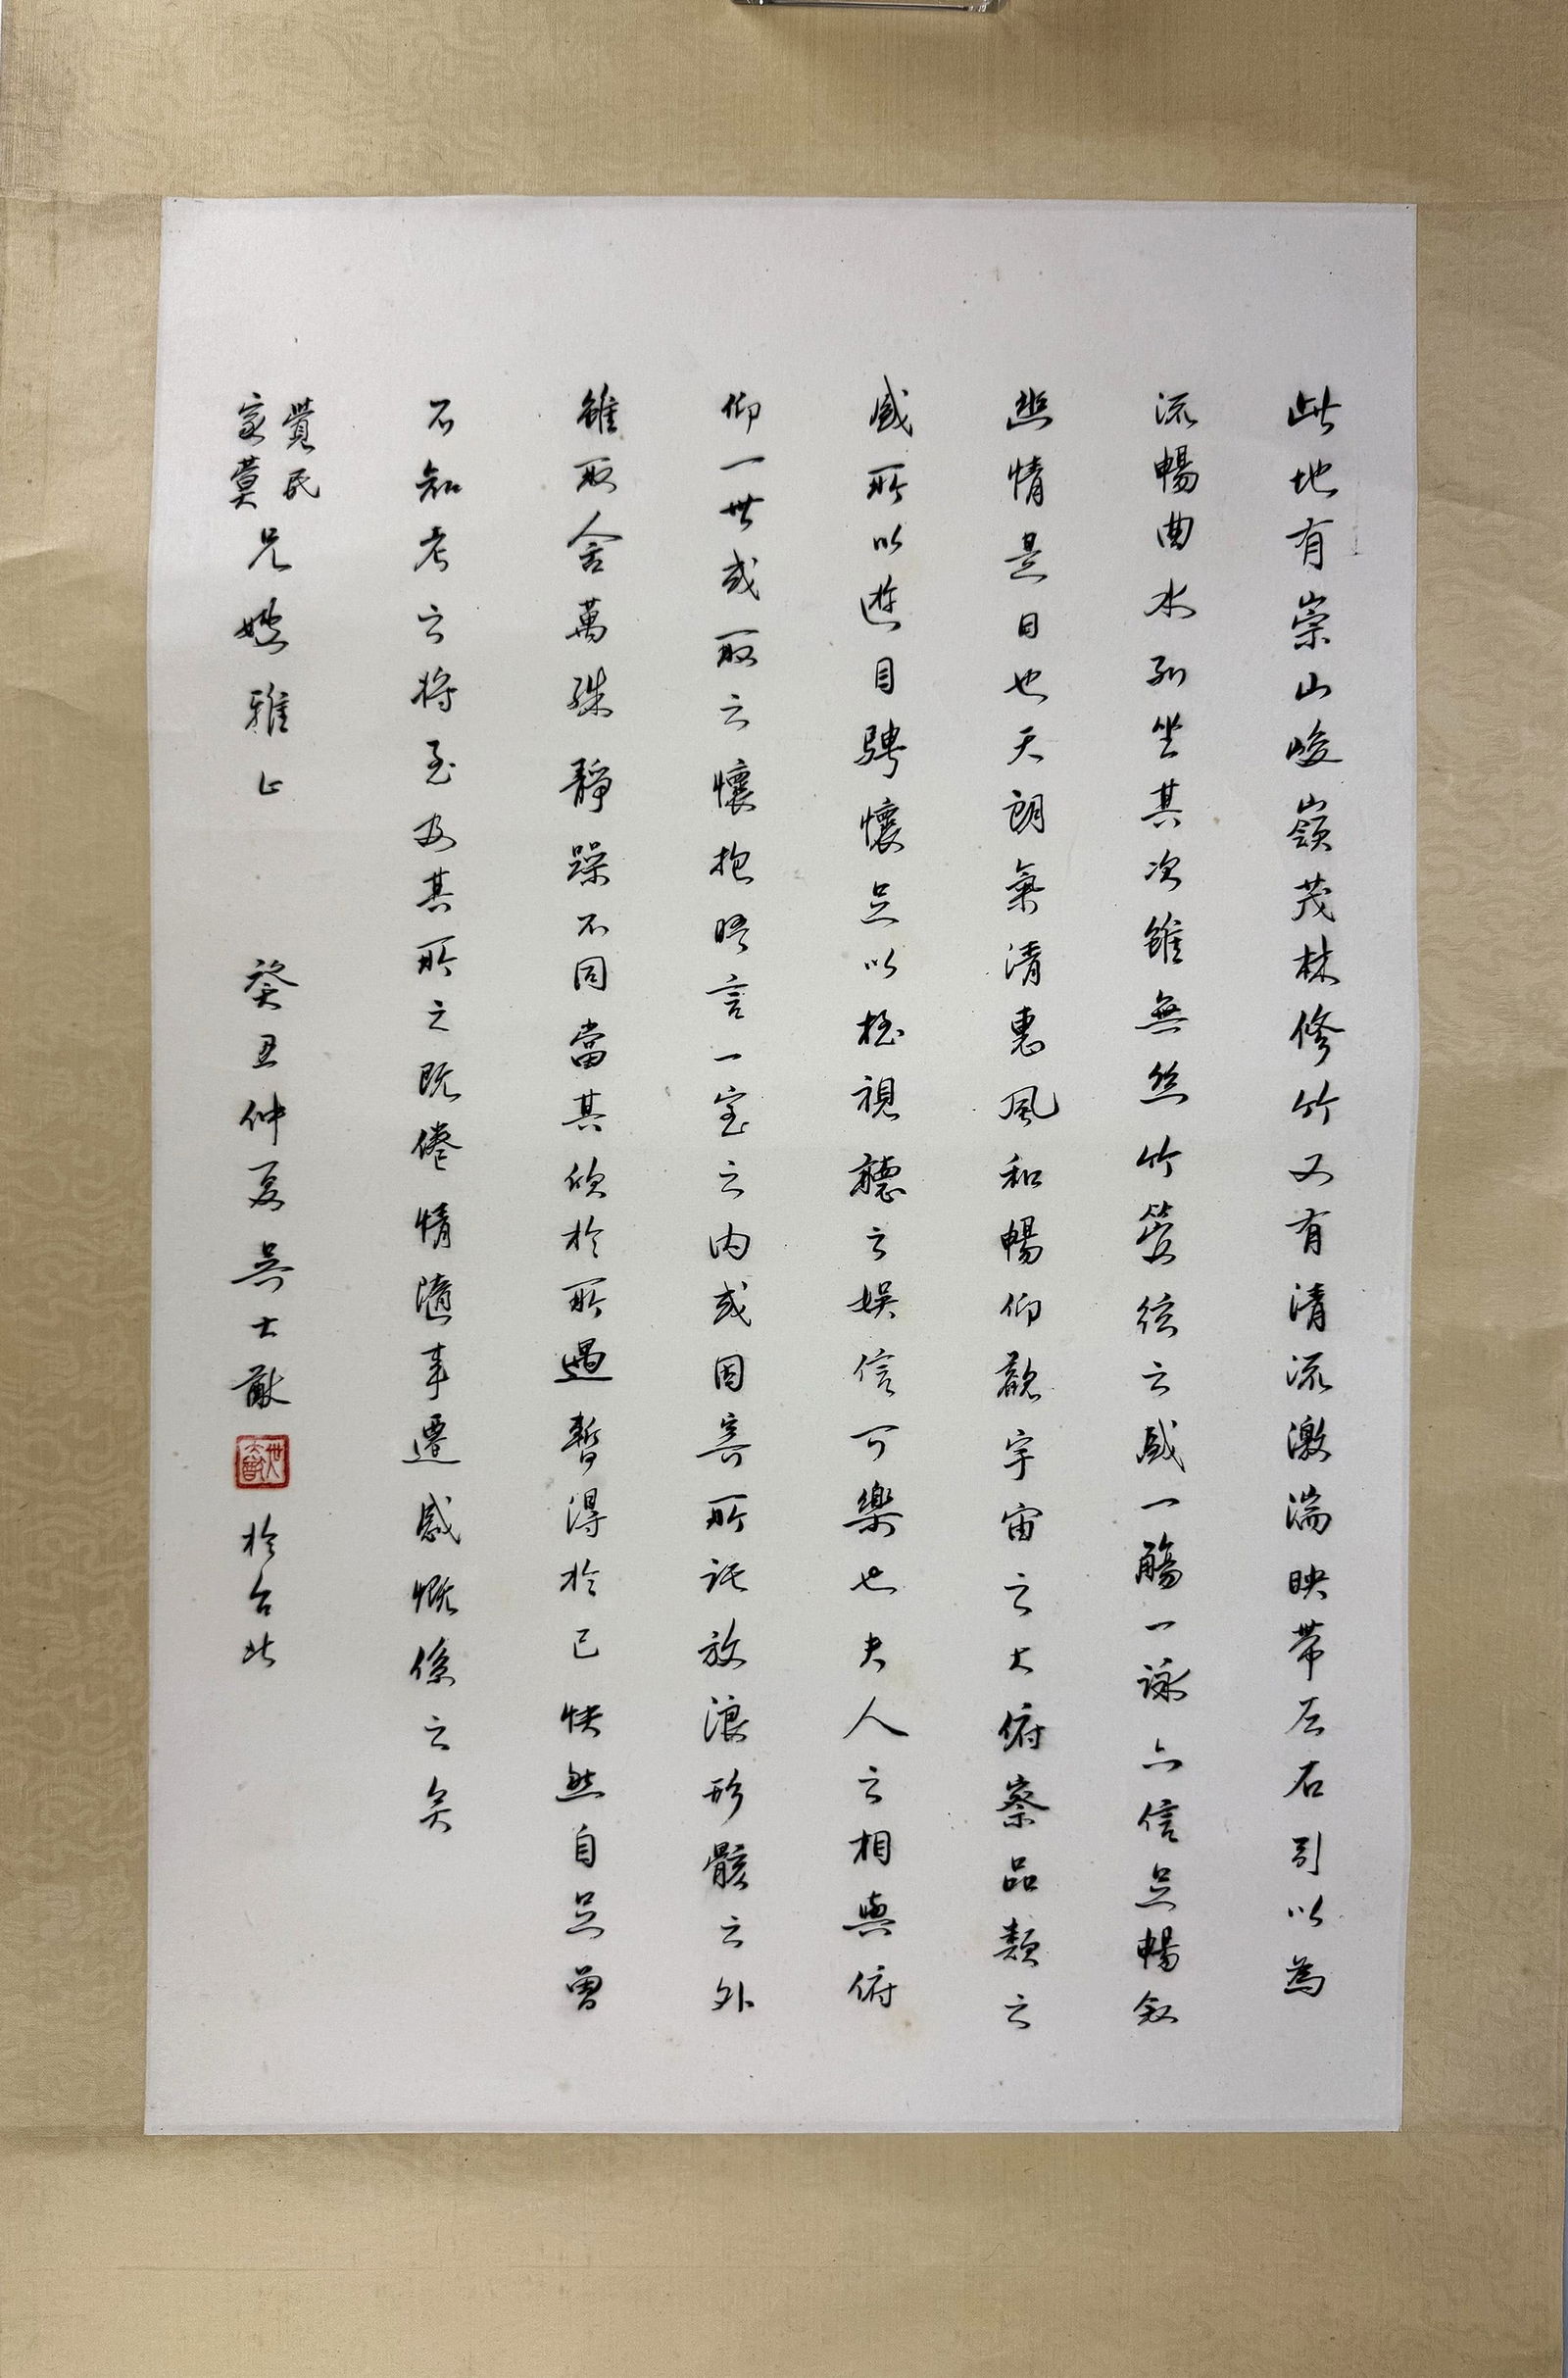 此地有崇山峻嶺茂林修竹又有清流激湍映帶左右引以為
流暢曲水列坐其次雖無絲竹管弦之盛一觴一詠亦信足暢叙
幽情是日也天朗氣清惠風和暢仰觀宇宙之大俯察品類之
盛所以遊目騁懷足以極視聽之娛信可樂也夫人之相與俯
仰一世或取之懷抱晤言一室之内或因寄所託放浪形骸之外
雖取舍萬殊靜躁不同當其欣於所遇暫得於己快然自足曾
不知老之將至及其所之既倦情隨事遷感慨係之矣
覺民
家蓂兄嫂雅正 癸丑仲夏吳士猷 於台北